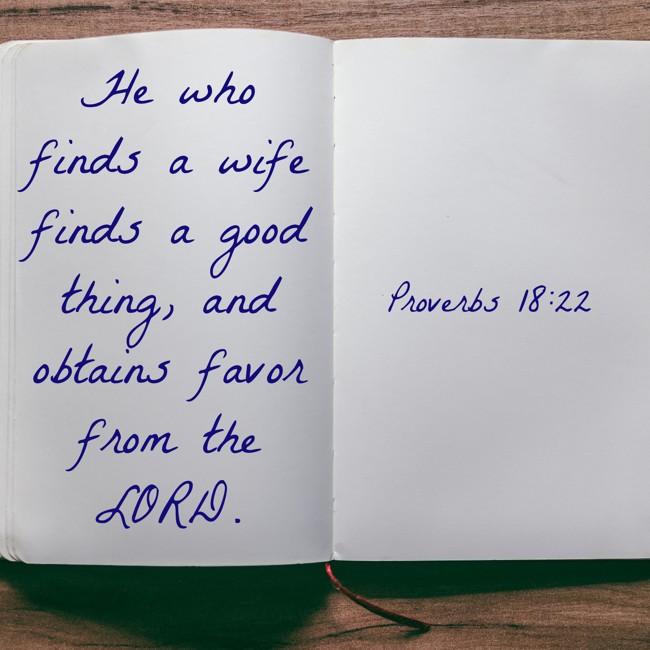 He who
finds a wife
finds a good
thing, and
obtains favor
from the
LORD.
Proverbs 18:22